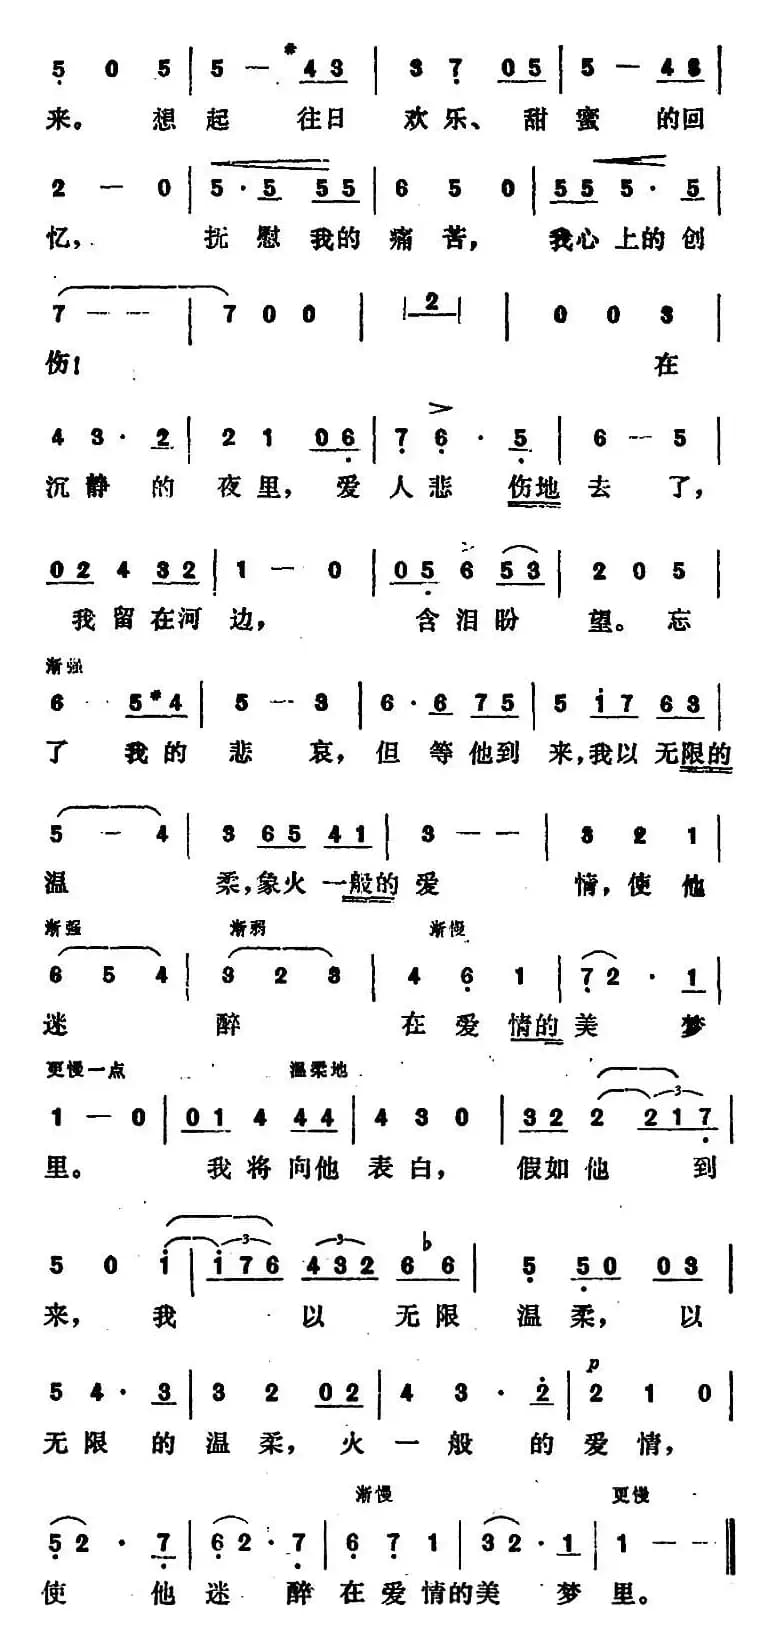 5 0 5 | 5 — #4 3 | 3 7 0 5 | 5 — 4 3 |
来。 想 起 往日 欢 乐、 甜 蜜 的回
2 — 0 | 5 · 5 5 5 | 6 5 0 | 5 5 5 · 5 |
忆, 抚 慰 我的 痛 苦, 我心 上的 创
7 — — | 7 0 0 | 2 | 0 0 3 |
伤! 在
4 3 · 2 | 2 1 0 6 | 7 6 · 5 | 6 — — 5 |
沉 静 的 夜 里, 爱 人 悲 伤地 去 了,
0 2 4 3 2 | 1 — 0 | 0 5 6 5 3 | 2 0 5 |
我 留 在河 边, 含 泪 盼 望。 忘
渐强
6 · · 5 #4 | 5 — 3 | 6 · 6 7 5 | 5 1 7 6 3 |
了 我 的 悲 哀, 但 等 他到 来, 我以 无限的
5 — 4 | 3 6 5 4 1 | 3 — — | 3 2 1 |
温 柔, 象火 一般的 爱 情, 使 他
渐强 渐弱 渐慢
6 5 4 | 3 2 3 | 4 6 1 | 7 2 · 1 |
迷 醉 在 爱 情的 美 梦
更慢一点 温柔地
1 — 0 | 0 1 4 4 4 | 4 3 0 | 3 2 2 2 1 7 |
里。 我 将 向他 表 白, 假如 他 到
5 0 1 | 1 7 6 4 3 2 6 ♭6 | 5 5 0 0 3 |
来, 我 以 无 限 温 柔, 以
5 4 · 3 | 3 2 0 2 | 4 3 · 2 | p 2 1 0 |
无 限 的 温 柔, 火 一 般 的 爱 情,
渐慢 更慢
5 2 · 7 | 6 2 · 7 | 6 7 1 | 3 2 · 1 | 1 — — ‖
使 他 迷 醉 在 爱 情的 美 梦 里。